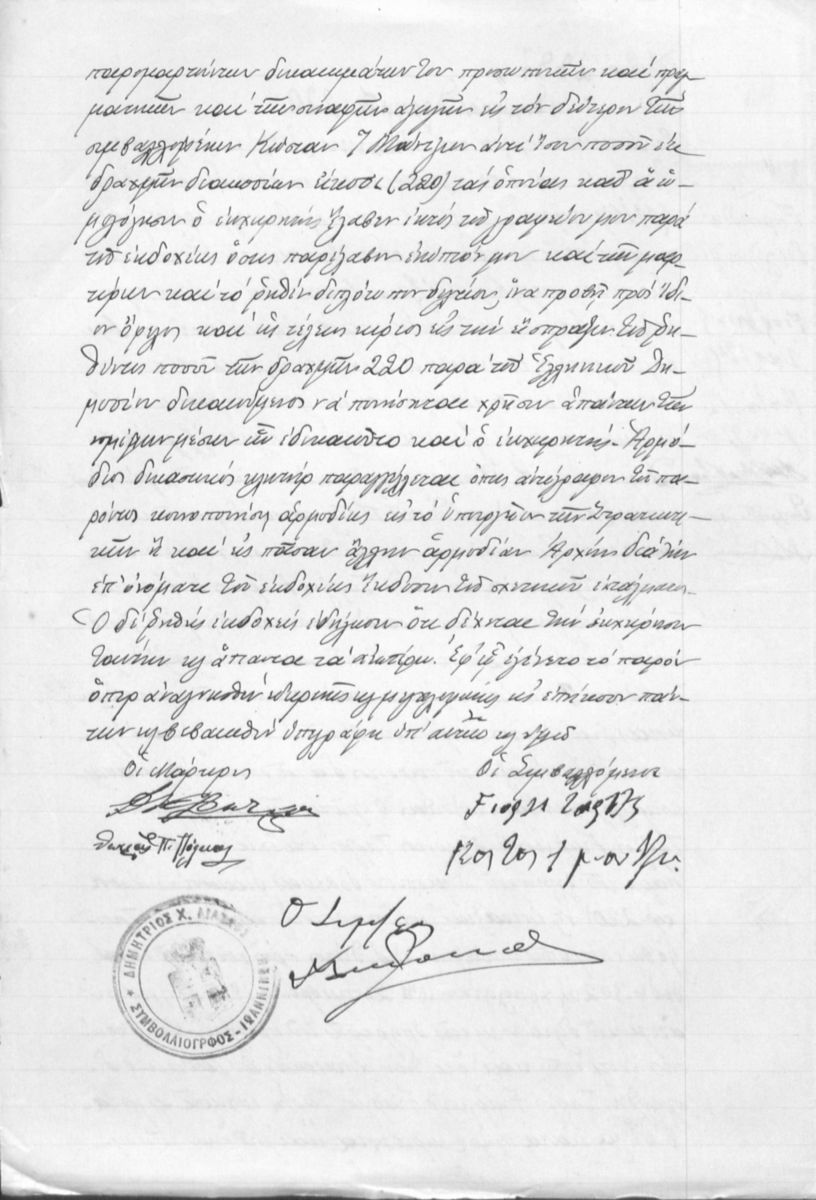 παρομαρτούντων δικαιωμάτων του προσωπικών και πραγ-
ματικών και των συναφών αγωγών εις τον δεύτερον των
συμβαλλομένων Κώσταν Ι Μάντζιον αντί ίσου ποσού εκ
δραχμών διακοσίων είκοσι (220) τας οποίας καθ' ά ω-
μολόγησεν ο εκχωρητής έλαβεν εκτός του γραφείου μου παρά
του εκδοχέως όστις παρέλαβεν ενώπιόν μου και των μαρ-
τύρων και το ρηθέν διπλότυπον δελτίον, ίνα προβή προς ίδι-
ον όφελος και ως τέλειος κύριος εις την είσπραξιν του ρη-
θέντος ποσού των δραχμών 220 παρά του Ελληνικού Δη-
μοσίου δικαιούμενος να ποιήσηται χρήσιν απάντων των
νομίμων μέσων ών εδικαιούτο και ο εκχωρητής. Αρμό-
διος δικαστικός κλητήρ παραγγέλλεται όπως αντίγραφον του πα-
ρόντος κοινοποιήση αρμοδίως εις το Υπουργείον των Στρατιωτι-
κών ή και εις πάσαν άλλην αρμοδίαν Αρχήν διά την
επ' ονόματι του εκδοχέως έκδοσιν του σχετικού εντάλματος.
Ο δε ρηθείς εκδοχεύς εδήλωσεν ότι δέχεται την εκχώρησιν
ταύτην κ άπαντα τα ανωτέρω. Εφ' ώ εγένετο το παρόν
όπερ αναγνωσθέν ευκρινώς κ μεγαλοφώνως εις επήκοον πάν-
των κ βεβαιωθέν υπεγράφη υπ' αυτών κ εμού
Οι Μάρτυρες
Οι Συμβαλλόμενοι
Ο Συμ/φος
ΔΗΜΗΤΡΙΟΣ Χ. ΛΙΑΣΚΟΣ
ΣΥΜΒΟΛΑΙΟΓΡΦΟΣ - ΙΩΑΝΝΙΝΩΝ